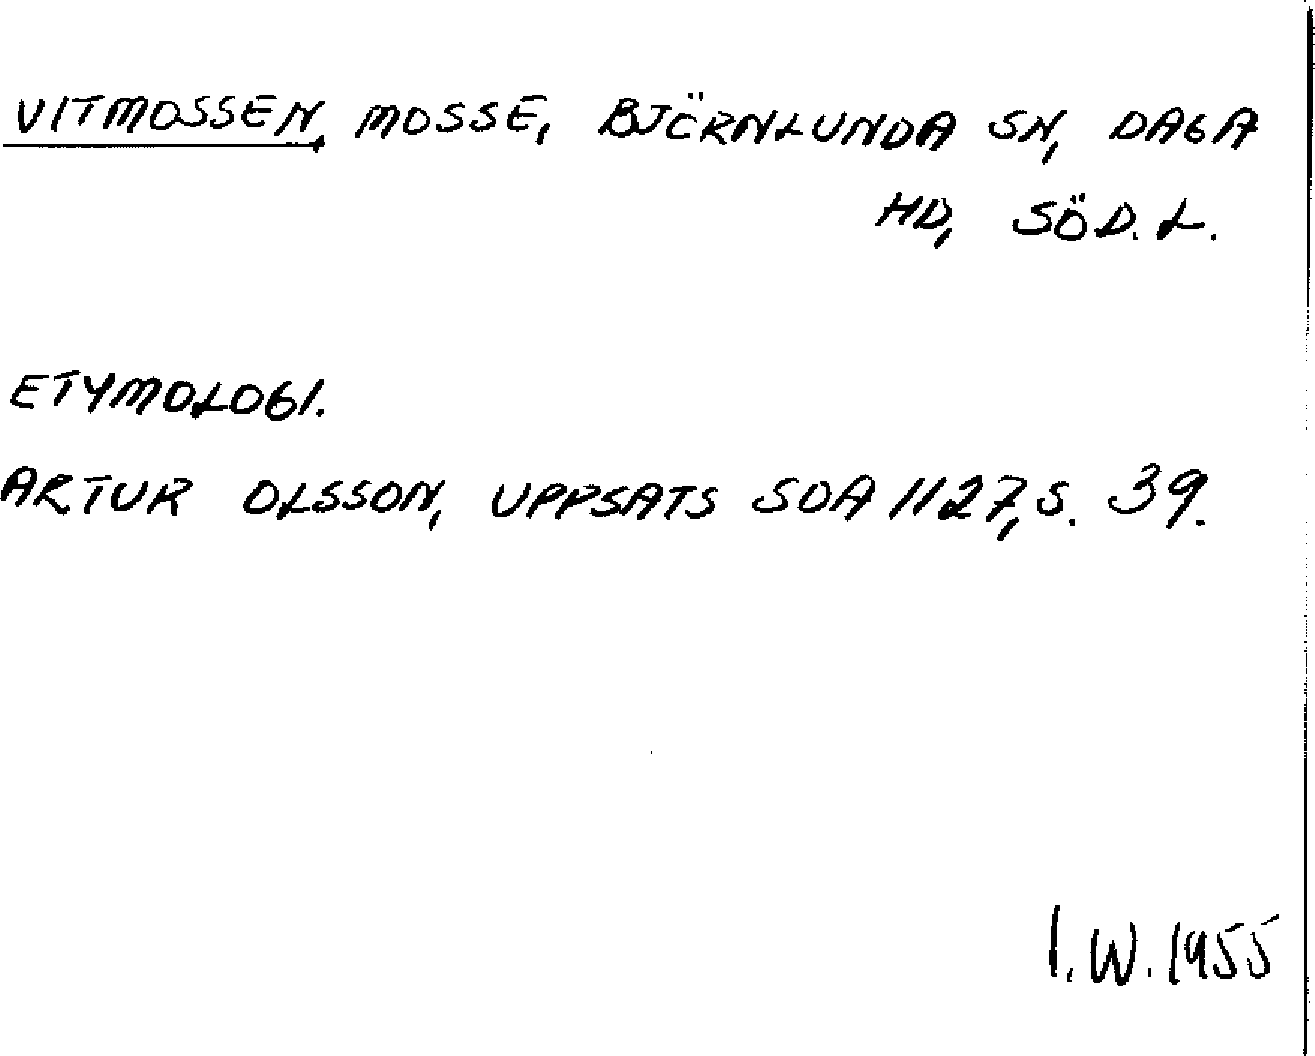 VITMOSSEN, MOSSE, BJÖRNLUNDA SN, DAGA
HD, SÖD.L.
ETYMOLOGI.
ARTUR OLSSON, UPPSATS SOA 1127, S. 39.
I.W. 1955